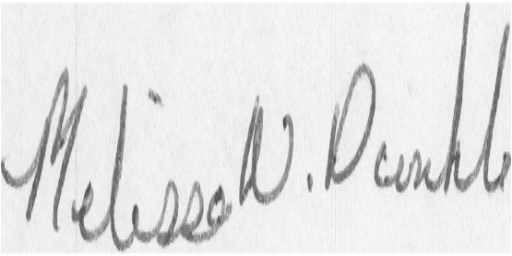 Melissa W. Dunkle